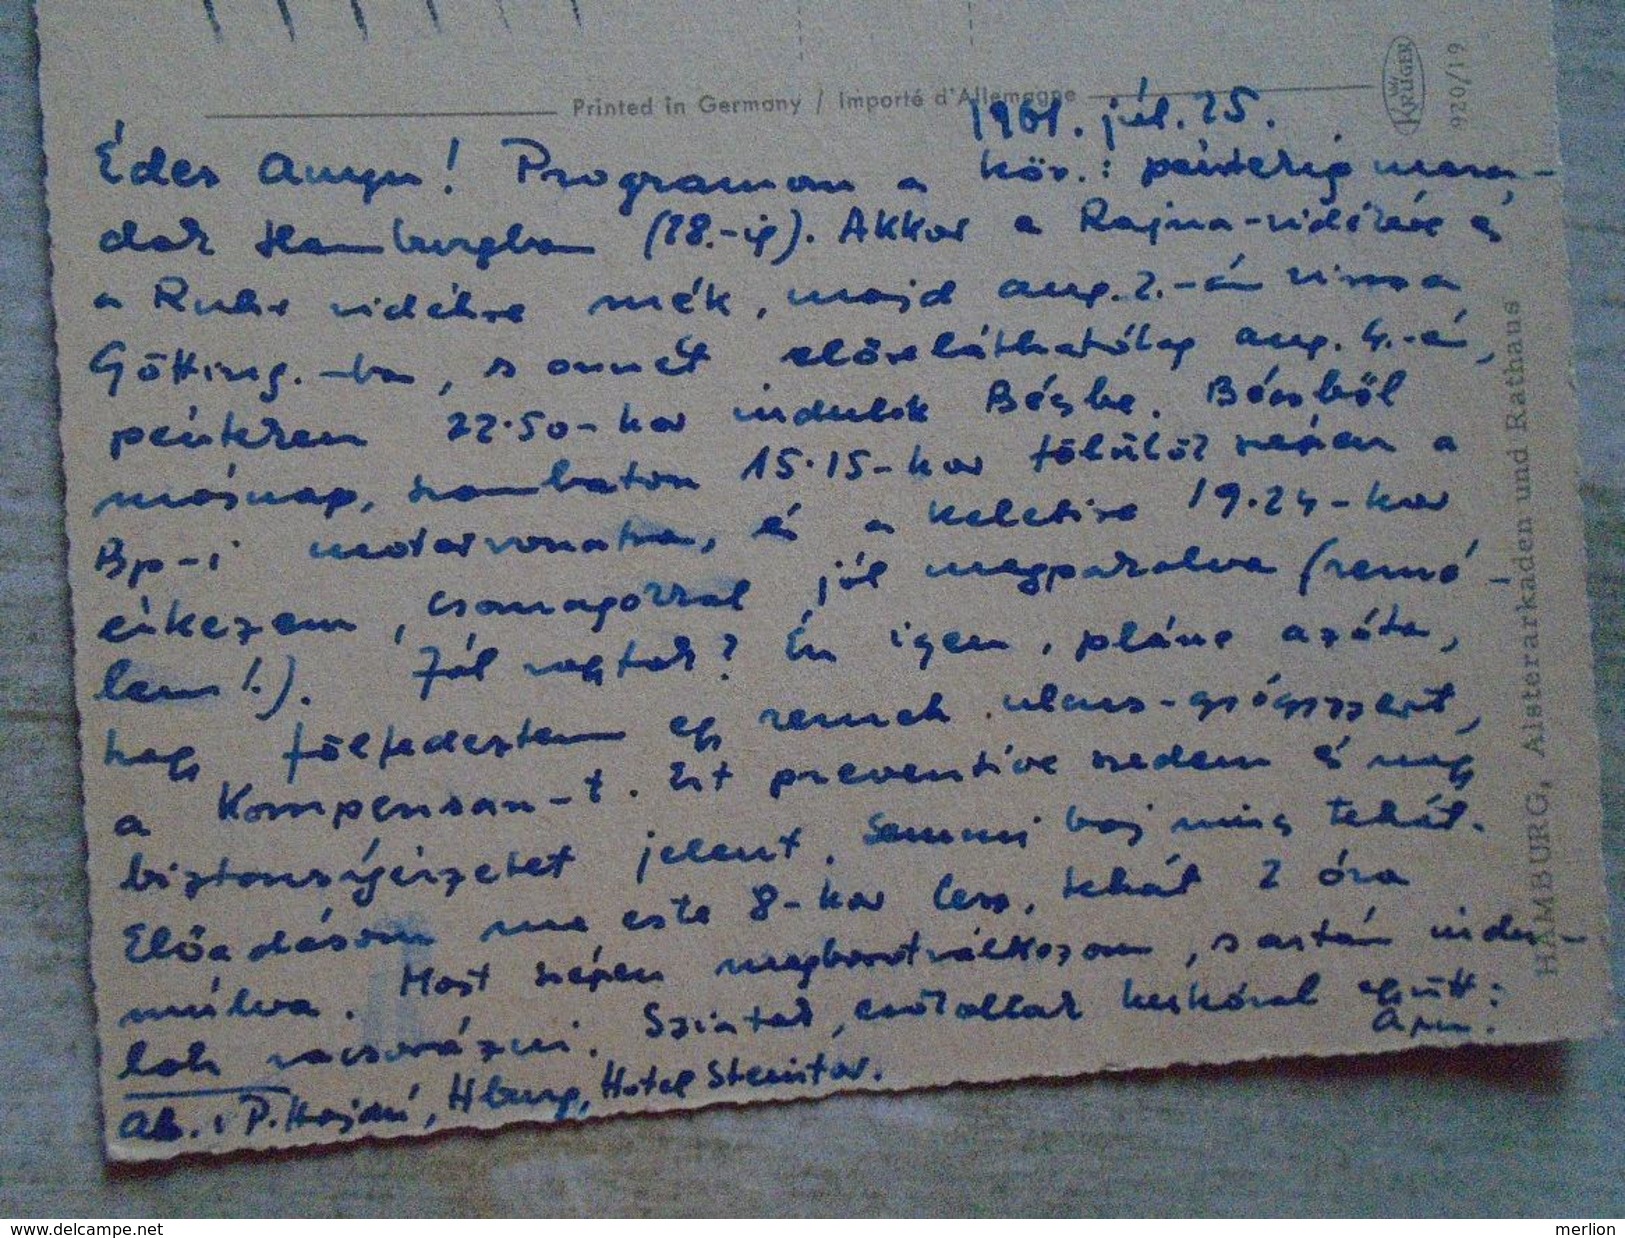 Printed in Germany / Importé d'Allemagne
KRÜGER
920/19
1961. júl. 25.
Édes Anyu! Programom a köv.: péntekig mara-
dok Hamburgban (28.-ig). Akkor a Rajna-vidékre és
a Ruhr vidékre mék, majd aug. 2.-án vissza
Götting.-ba, s onnét előreláthatólag aug. 4.-én,
pénteken 22.50-kor indulok Bécsbe. Bécsből
másnap, szombaton 15.15-kor fölülök szépen a
Bp-i motorvonatra, és a Keletire 19.24-kor
érkezem, csomagokkal jól megpakolva (remé-
lem!.). Jól vagytok? Én igen, pláne azóta,
hogy fölfedeztem egy remek ulcus-gyógyszert,
a Kompensan-t. Ezt preventíve szedem és nagy
biztonságérzetet jelent. Semmi baj nincs tehát.
Előadásom ma este 8-kor lesz, tehát 2 óra
múlva. Most szépen megborotválkozom, s aztán indu-
lok vacsorázni. Szintar, csókollak keskónal együtt:
Apu.
Ab.: P. Hajdú, Hburg, Hotel Steintor.
HAMBURG, Alsterarkaden und Rathaus
www.delcampe.net
merlion